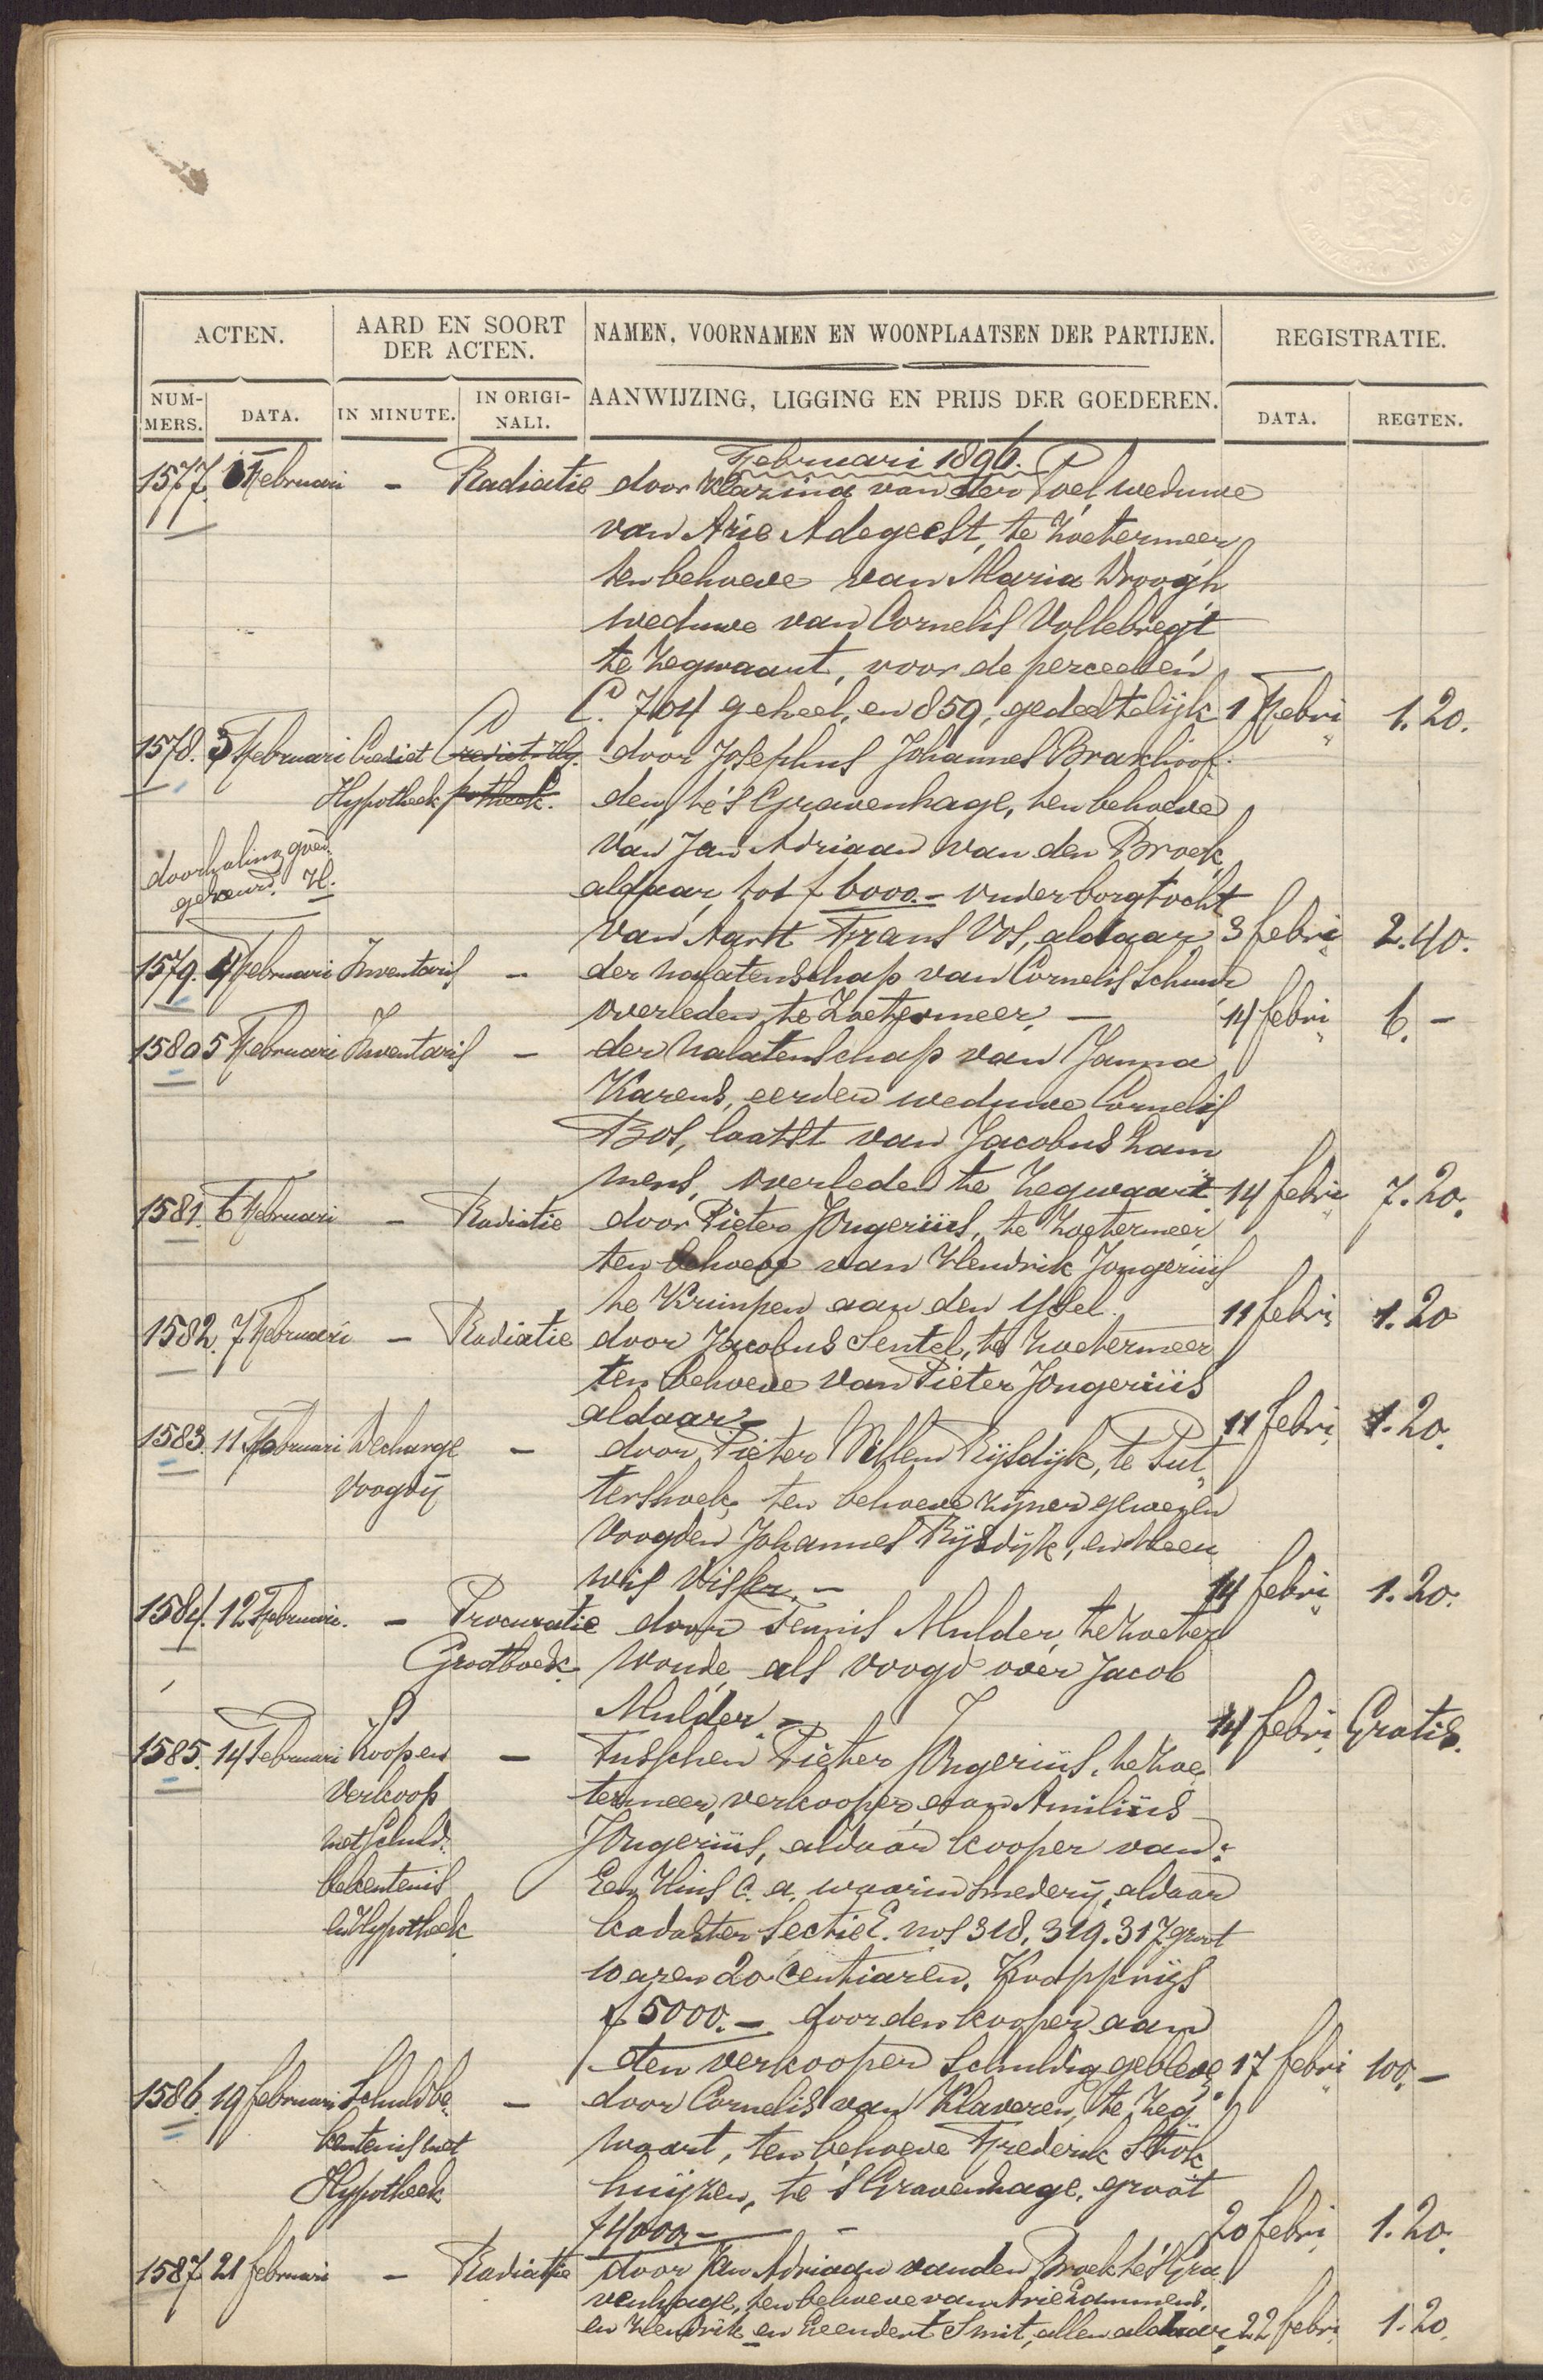 ACTEN.
AARD EN SOORT
DER ACTEN.
NAMEN, VOORNAMEN EN WOONPLAATSEN DER PARTIJEN.
REGISTRATIE.
NUM-
MERS.
DATA.
IN MINUTE.
IN ORIGI-
NALI.
AANWIJZING, LIGGING EN PRIJS DER GOEDEREN.
DATA.
REGTEN.
Februari 1896.
1577. 1 Februari - Radiatie door Klazina van der Poel weduwe
van Arie Adegeest, te Zoetermeer
ten behoeve van Maria Droogh
weduwe van Cornelis Vollebregt
te Zegwaart, voor de perceelen
C. 704 geheel, en 859, gedeeltelijk 1 Febri 1.20.
1578. 3 Februari Crediet Crediet-Hy- door Josephus Johannes Braxhoof-
Hypotheek potheek. den, te 's Gravenhage, ten behoeve
van Jan Adriaan van den Broek,
doorhaling goed-
gekeurd. H.
aldaar, tot f 6000.- onder borgtocht
van Aart Frans Vos, aldaar 3 febri 2.40.
1579. 4 Februari Inventaris - der nalatenschap van Cornelis Schuur
overleden te Zoetermeer, - 14 febri 6.-
1580 5 Februari Inventaris - der nalatenschap van Janna
Karens, eerder weduwe Cornelis
Bos, laatst van Jacobus Lam
mens, overleden te Zegwaart 14 febri 7.20.
1581. 6 Februari - Radiatie door Pieter Jongeriüs, te Zoetermeer
ten behoeve van Hendrik Jongeriüs
te Krimpen aan den IJsel. 11 febri 1.20
1582. 7 Februari - Radiatie door Jacobus Sentel, te Zoetermeer
ten behoeve van Pieter Jongeriüs
aldaar.- 11 febri 1.20.
1583. 11 Februari Decharge - door Pieter Willem Rijsdijk, te Put-
Voogdij tershoek, ten behoeve zijner gewezen
voogden Johannes Rijsdijk, en Leen
wis Visser. - 14 febri 1.20.
1584. 12 Februari. - Procuratie door Teunis Mulder, te Zoeter
Grootboek. woude als voogd over Jacob
Mulder.- 14 febri Gratis.
1585. 14 Februari Koop en - Tusschen Pieter Jongeriüs, te Zoe
verkoop termeer, verkooper, en an Amiliüs
met Schuld- Jongeriüs, aldaar kooper van:
bekentenis Een Huis c.a. waarin smederij, aldaar
en Hypotheek kadaster Sectie E. nos 318, 319. 317, groot
10 aren 20 centiaren. Koopprijs
f 5000.- door den kooper aan
den verkooper schuldig gebleve 17 febri 100.-
1586. 19 februari Schuldbe- - door Cornelis van Klaveren, te Zeg
kentenis met waart, ten behoeve Frederik Stok
Hypotheek huijzen, te 's Gravenhage, groot
f 4000.- - 20 febri 1.20.
1587. 21 februari - Radiatie door Jan Adriaan van den Broek te 's Gra
venhage, ten behoeve van Arie Lammens,
en Hendrik en Leendert Smit, allen aldaar, 22 febri 1.20.